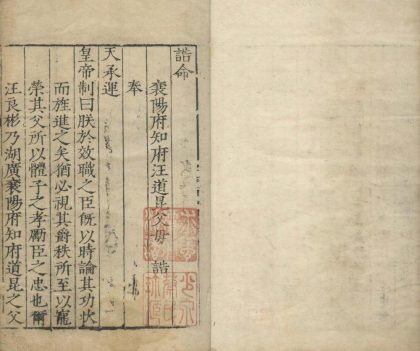 誥命
襄陽府知府汪道昆父母 誥
奉
天承運
皇帝制曰朕於效職之臣旣以時論其功狀
而旌進之矣猶必視其爵秩所至以寵
榮其父所以體子之孝勵臣之忠也爾
汪良彬乃湖廣襄陽府知府道昆之父